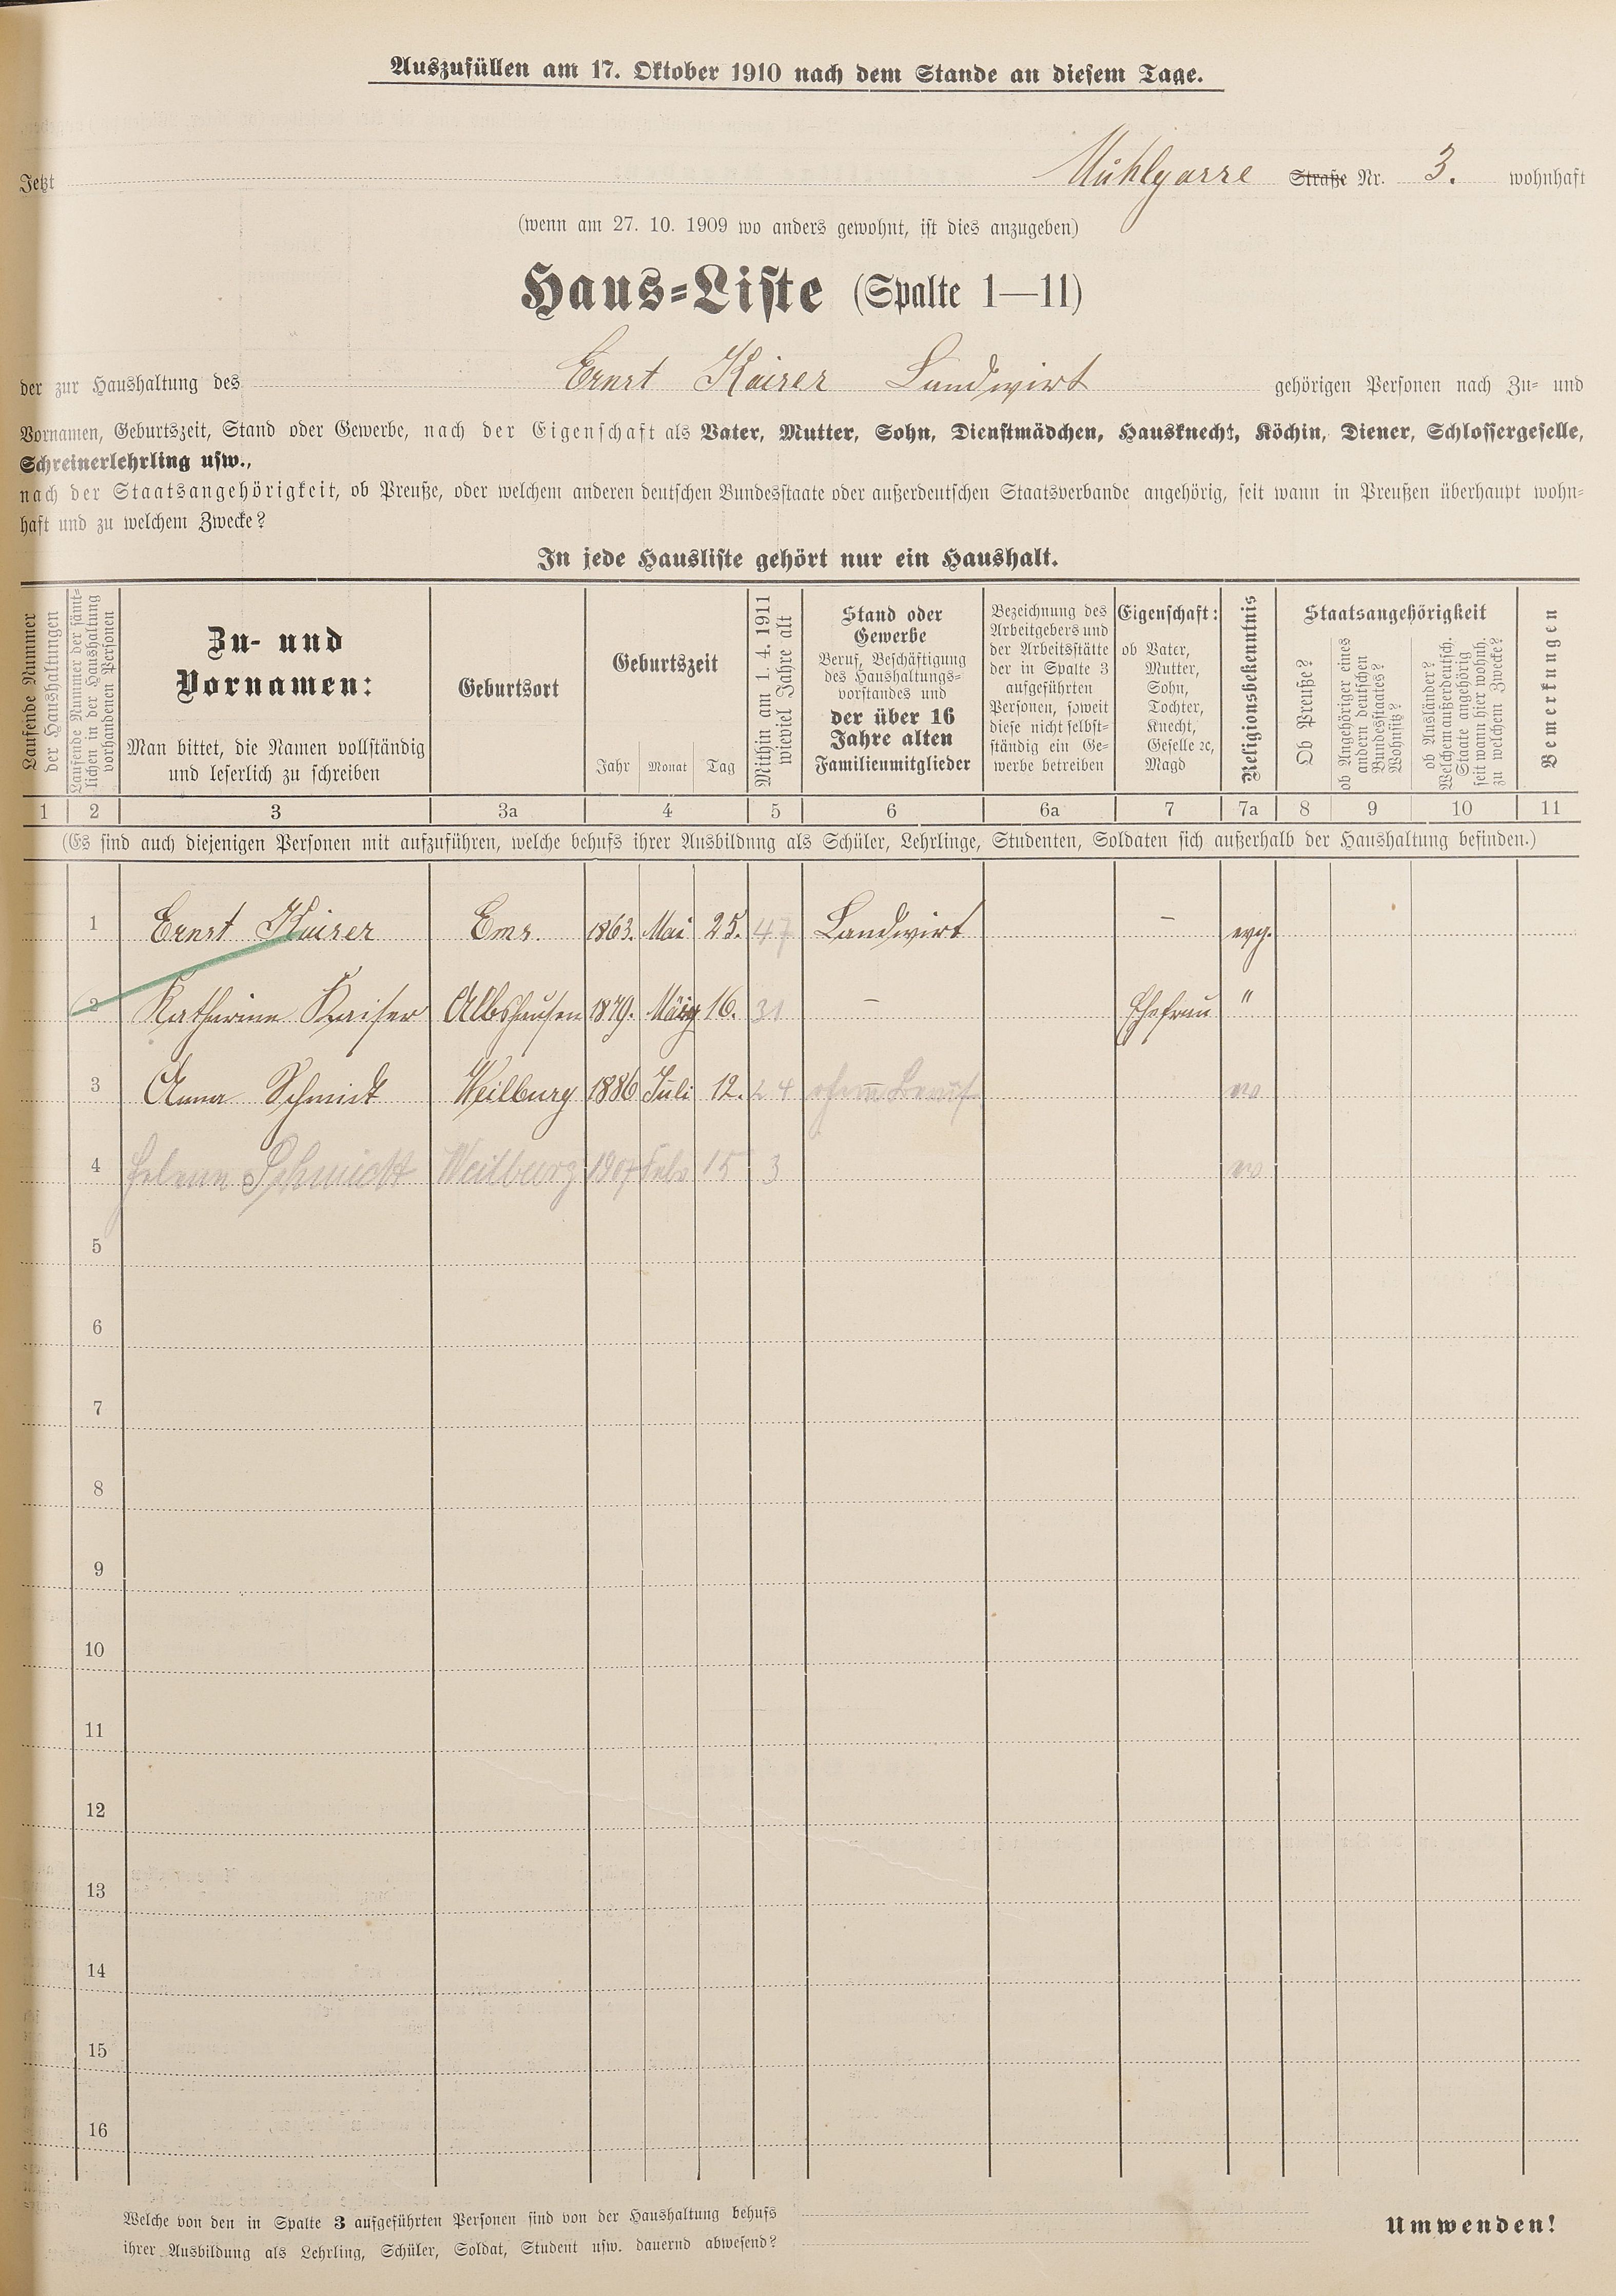 Auszufüllen am 17. Oktober 1910 nach dem Stande an diesem Tage.
Jetzt Mühlgasse Straße Nr. 3. wohnhaft
(wenn am 27. 10. 1909 wo anders gewohnt, ist dies anzugeben)
Haus-Liste (Spalte 1—11)
der zur Haushaltung des Ernst Kaiser Landwirt gehörigen Personen nach Zu- und
Vornamen, Geburtszeit, Stand oder Gewerbe, nach der Eigenschaft als Vater, Mutter, Sohn, Dienstmädchen, Hausknecht, Köchin, Diener, Schlossergeselle,
Schreinerlehrling usw.,
nach der Staatsangehörigkeit, ob Preuße, oder welchem anderen deutschen Bundesstaate oder außerdeutschen Staatsverbande angehörig, seit wann in Preußen überhaupt wohn-
haft und zu welchem Zwecke?
In jede Hausliste gehört nur ein Haushalt.
Laufende Nummer
der Haushaltungen
Laufende Nummer der sämt-
lichen in der Haushaltung
vorhandenen Personen
Zu- und
Vornamen:
Man bittet, die Namen vollständig
und leserlich zu schreiben
Geburtsort
Geburtszeit
Jahr Monat Tag
Mithin am 1. 4. 1911
wieviel Jahre alt
Stand oder
Gewerbe
Beruf, Beschäftigung
des Haushaltungs-
vorstandes und
der über 16
Jahre alten
Familienmitglieder
Bezeichnung des
Arbeitgebers und
der Arbeitsstätte
der in Spalte 3
aufgeführten
Personen, soweit
diese nicht selbst-
ständig ein Ge-
werbe betreiben
Eigenschaft:
ob Vater,
Mutter,
Sohn,
Tochter,
Knecht,
Geselle ꝛc,
Magd
Religionsbekenntnis
Staatsangehörigkeit
Ob Preuße?
ob Angehöriger eines
andern deutschen
Bundesstaates?
Wohnsitz?
ob Ausländer?
Welchem außerdeutsch.
Staate angehörig
seit wann hier wohnh.
zu welchem Zwecke?
Bemerkungen
1 2 3 3a 4 5 6 6a 7 7a 8 9 10 11
(Es sind auch diejenigen Personen mit aufzuführen, welche behufs ihrer Ausbildung als Schüler, Lehrlinge, Studenten, Soldaten sich außerhalb der Haushaltung befinden.)
1 Ernst Kaiser Ems. 1863. Mai 25. 47 Landwirt – evg.
2 Katharine Kaiser Albshausen 1879. März 16. 31 – Ehefrau "
3 Anna Schmidt Weilburg 1886 Juli 12. 24 – ohne Beruf
4 Helene Schmidt Weilburg 1907 Febr 15 3
5
6
7
8
9
10
11
12
13
14
15
16
Welche von den in Spalte 3 aufgeführten Personen sind von der Haushaltung behufs
ihrer Ausbildung als Lehrling, Schüler, Soldat, Student usw. dauernd abwesend?
Umwenden!